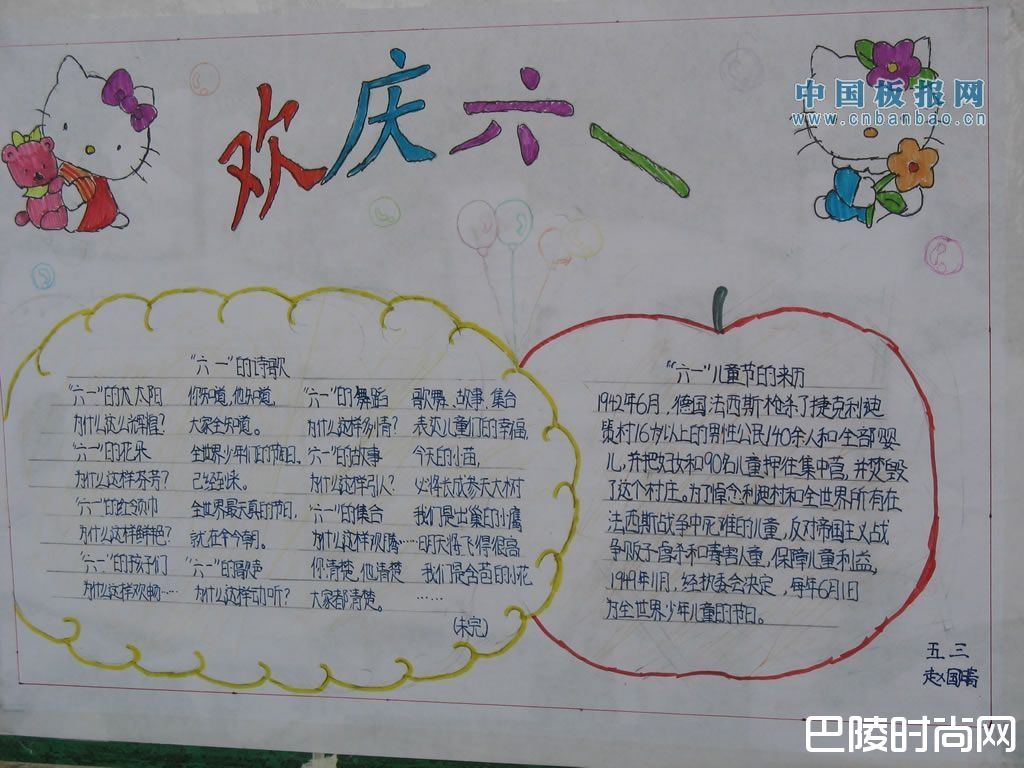 欢庆六一
中国板报网
www.cnbanbao.cn
"六一"的诗歌
"六一"的大太阳 你知道,他知道,
为什么这么辉煌? 大家全知道。
"六一"的花朵 全世界少年们的节日,
为什么这样芬芳? 已经到来。
"六一"的红领巾 全世界最天真的节日,
为什么这样鲜艳? 就在今朝。
"六一"的孩子们 "六一"的
为什么这样欢畅…… 为什么这样动听?
"六一"的舞蹈 歌舞、故事、集合
为什么这样多情? 表达儿童们的幸福,
"六一"的故事 今天的小苗,
为什么这样引人? 必将长成参天大树
"六一"的集合 我们是出巢的小鹰
为什么这样欢腾… 明天将飞得很高
你清楚,他清楚 我们是含苞的小花
大家都清楚。 ……
(未完)
"六一"儿童节的来历
1942年6月,德国法西斯枪杀了捷克利迪
策村16岁以上的男性公民140余人和全部婴
儿,并把妇女和90名儿童押往集中营,并焚毁
了这个村庄。为了悼念利迪村和全世界所有在
法西斯战争中死难的儿童,反对帝国主义战
争贩子虐杀和毒害儿童,保障儿童利益,
1949年11月,经执委会决定,每年6月1日
为全世界少年儿童的节日。
五三
赵国晴
巴陵时尚网